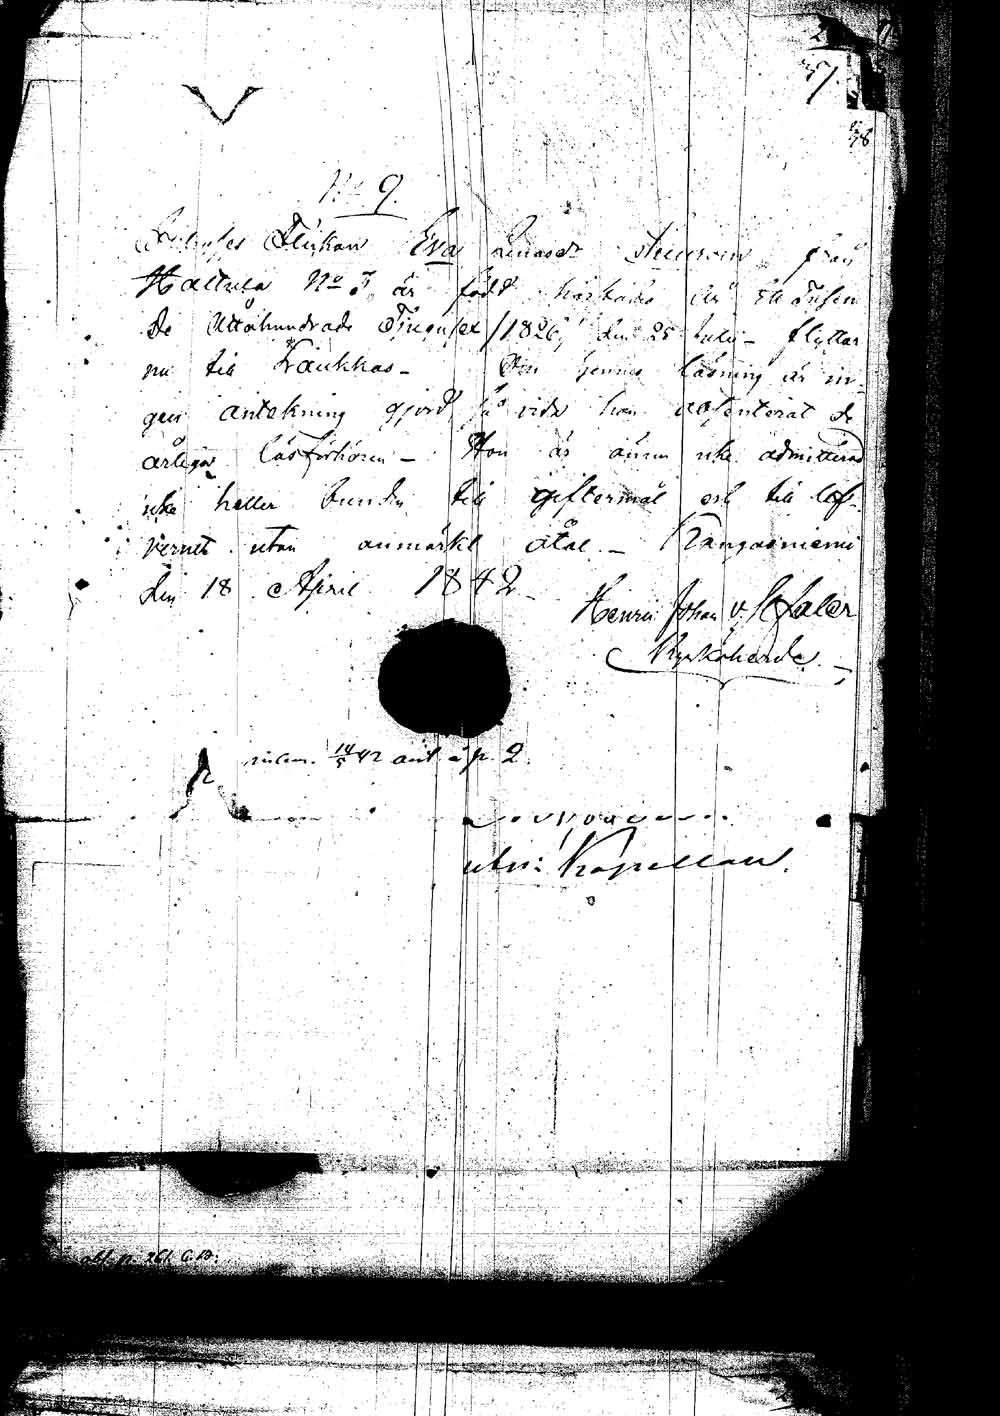 57.
No 9.
Flickan Eva från
Hallula No 3, är född härstädes år Ett Tusen
de Åttahundrade Tjugusex /1826/ den 25 Julii - flyttar
nu till Laukkas - Om hennes läsning är in-
gen antekning gjord, så vida hon absenterat de
årliga Läsförhören - Hon är ännu icke admitterad
icke heller bunden till giftermål och till lef-
vernet utan anmärkt åtal. - Kangasniemi
den 18 April 1842 -
Henric Johan v.
Kyrkoherde. -
incam. 14/5 42 ant. å p. 2.
Kapellan.
p. 261